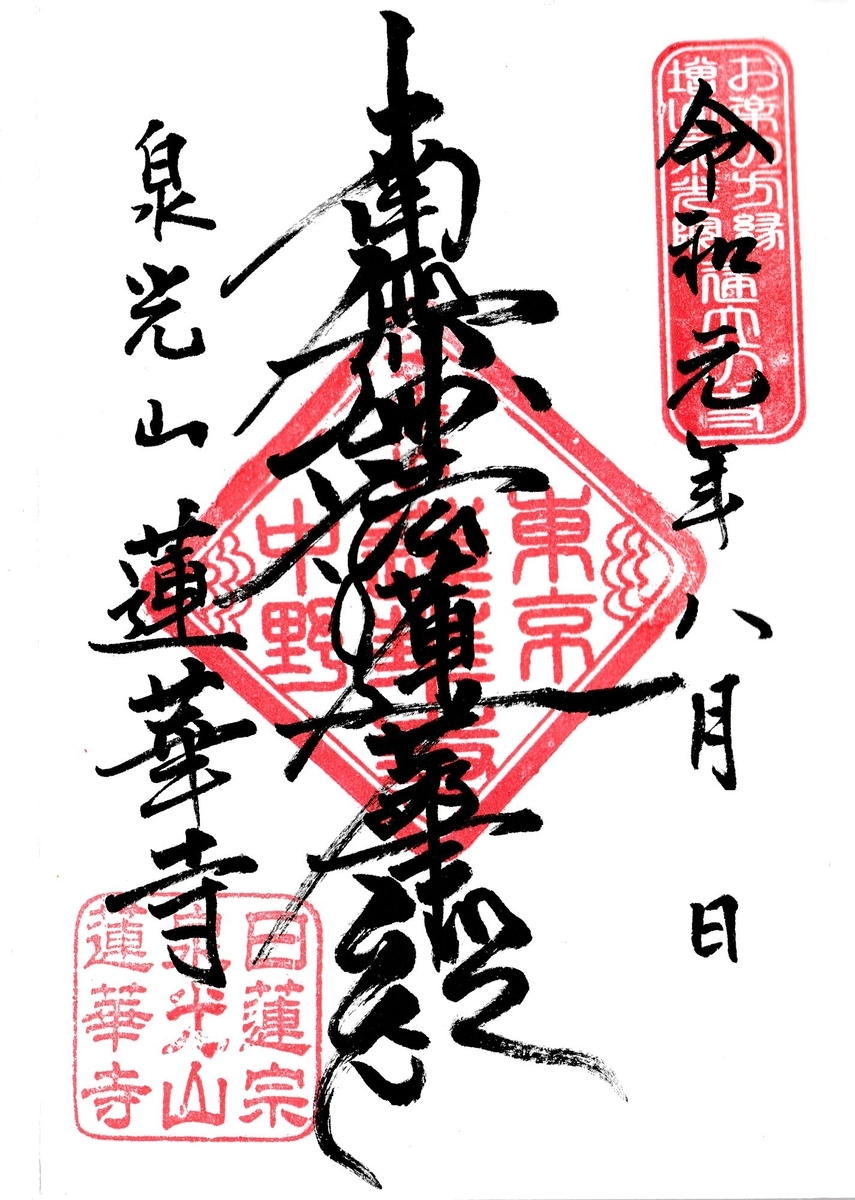 お楽の方縁
令和元年八月 日
南無妙法蓮華經
東京
中野
泉光山 蓮華寺
日蓮宗
泉光山
蓮華寺